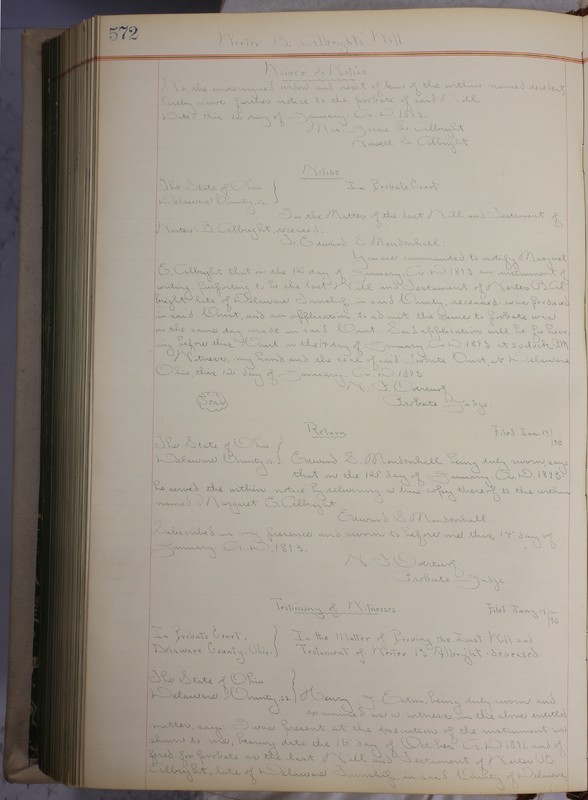 572
B. Albright's Will
Waiver of Notice
the undersigned widow and next of kin of the within named decedent,
hereby waive further notice to the probate of said Will.
this 12 day of January A. D. 1893.
Mrs. Albright
Albright
Notice
The State of Ohio } In Probate Court
Delaware County, ss.
In the Matter of the last Will and Testament of
B. Albright, deceased.
To Edward E. Mendenhall:
You are commanded to notify Margaret
E. Albright that on the 12 day of January A. D. 1893 an instrument of
writing, purporting to be the last Will and Testament of B. Al-
bright late of Delaware Township in said County, deceased was produced
in said Court, and an application to admit the same to probate was
on the same day made in said Court. Said application will be for hear-
ing before this Court on the day of January A. D. 1893 at o'clock M.
Witness, my hand and the seal of said Probate Court, at Delaware
Ohio, this 12 day of January A. D. 1893
Seal
Probate Judge
Return Filed Jan
The State of Ohio }
Delaware County, ss. } Edward E. Mendenhall being duly sworn, says
that on the 12 day of January A. D. 1893
he served the within notice by delivering a true copy thereof to the within
named Margaret E. Albright
Edward E. Mendenhall
Subscribed in my presence and sworn to before me this day of
January A. D. 1893.
Probate Judge
Testimony of Witnesses Filed
In Probate Court, } In the Matter of Proving the Last Will and
Delaware County, Ohio. } Testament of B. Albright deceased
The State of Ohio }
Delaware County, ss. } Henry J. Eaton, being duly sworn and
examined as a witness in the above entitled
matter, says: I was present at the execution of the instrument now
shown to me, bearing date the 16 day of October A. D. and of-
fered for probate as the last Will and Testament of B.
Albright, late of Delaware Township in said County of Delaware